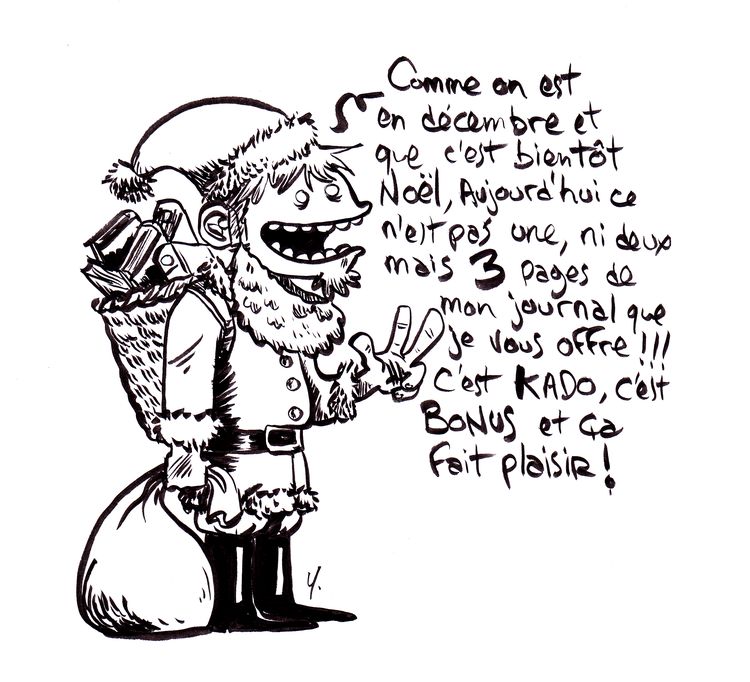 Comme on est
en décembre et
que c'est bientôt
Noël, Aujourd'hui ce
n'est pas une, ni deux
mais 3 pages de
mon journal que
je vous offre !!!
C'est KADO, c'est
BONUS et ça
fait plaisir !
Y.